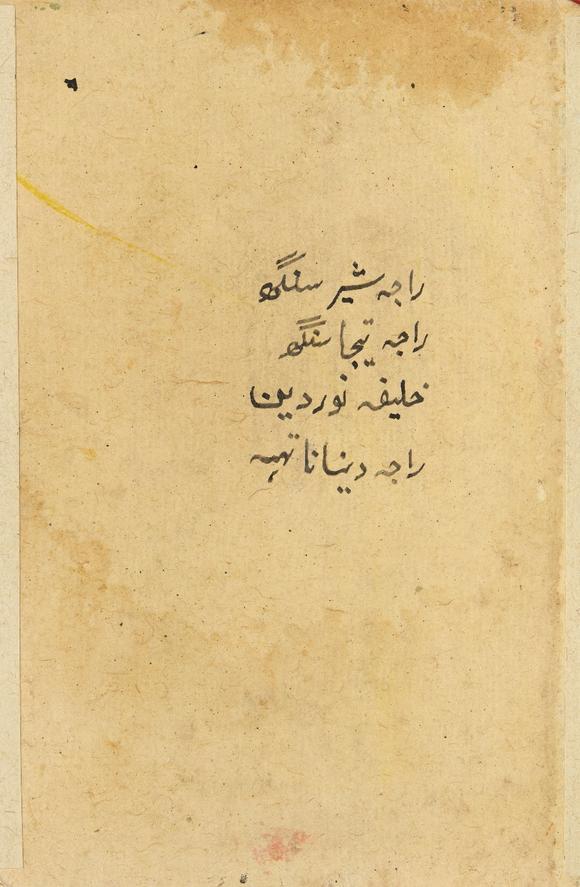 راجہ شیر سنگھ
راجہ تیجا سنگھ
خلیفہ نوردین
راجہ دینا ناتھہ